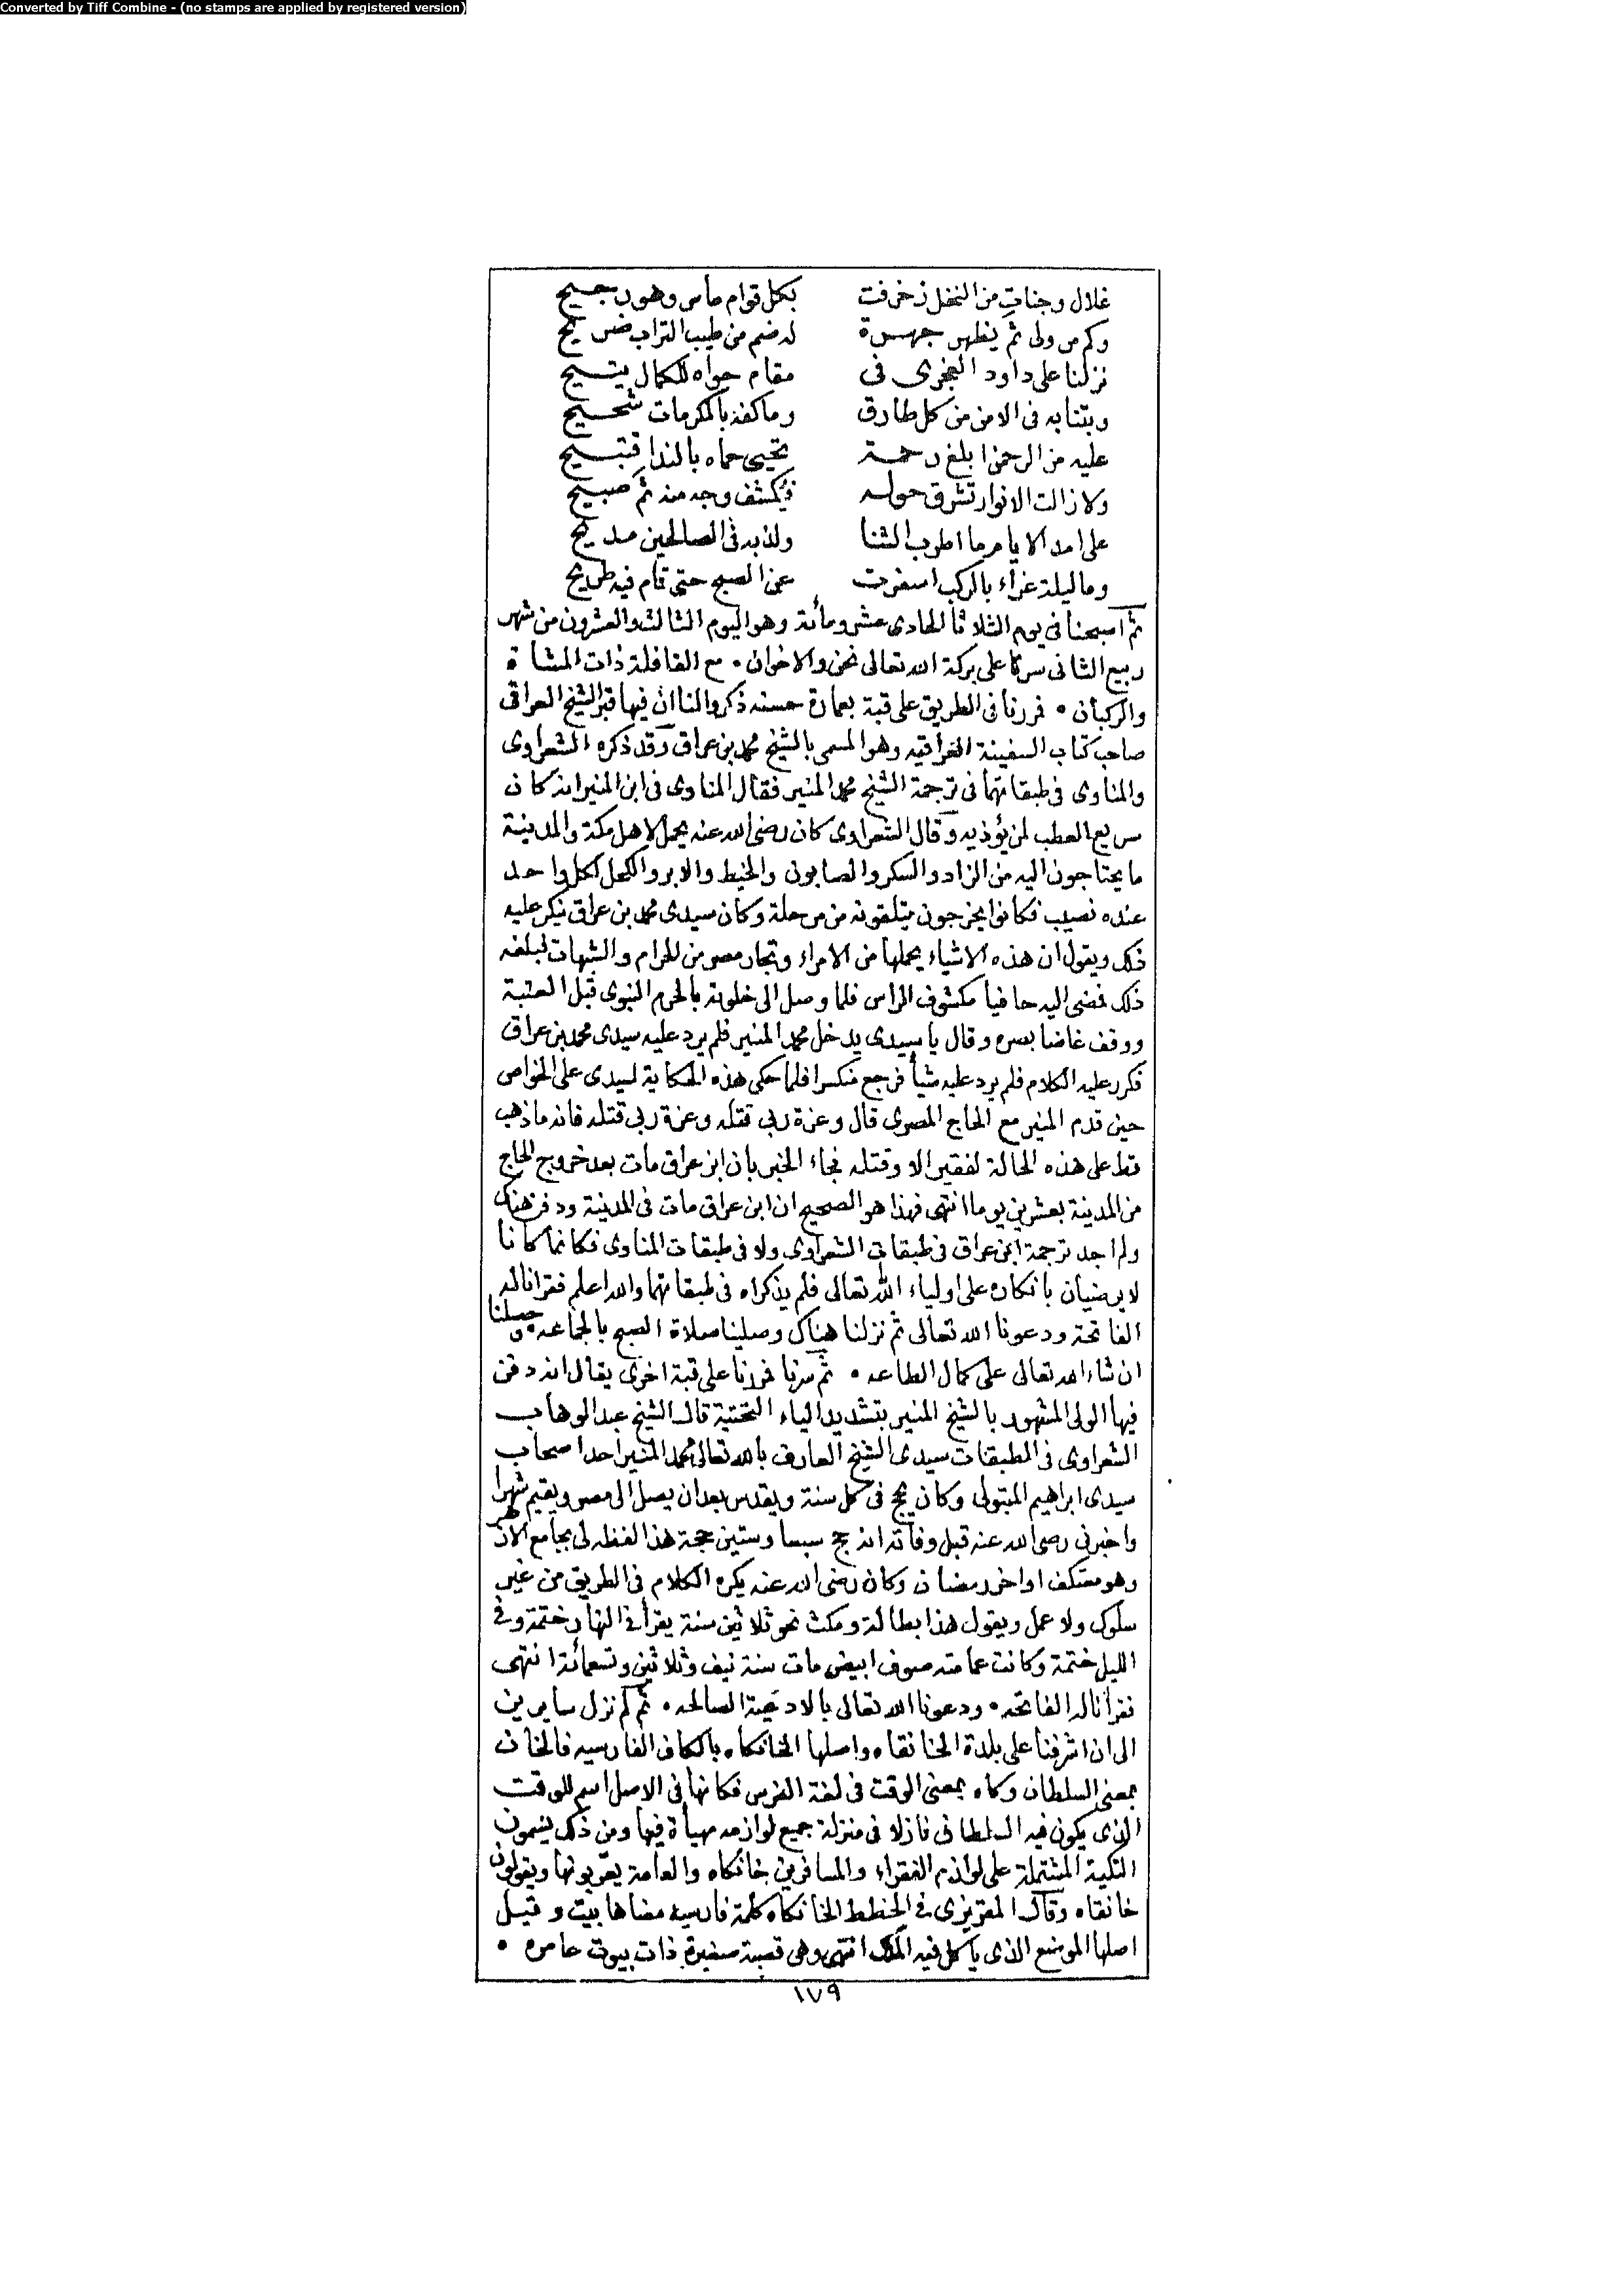 Converted by Tiff Combine - (no stamps are applied by registered version)
غلال وجنات من النخل زخرفت بكل قوام مأس وهو رجيح
وكم من ولى ثم يظهر جهرة له ضم من طيب التراب ضريح
نزلنا على داود العجزى فى مقام حواه للكمال يتيح
وبتنا به فى الامن من كل طارق وما كفه بالمكرمات شحيح
عليه من الرحمن ابلغ رحمة تحيى حماه بالندا
ولا زالت الانوار تشرق حوله فيكشف وجه منه ثم صبيح
على امد الايام ما اطرب الثنا ولذ به فى الصالحين مديح
وما ليلة غراء بالركب اسفرت عن الصبح حتى قام فيه طريح
ثم اصبحنا فى يوم الثلاثا الحادى عشر ومأئة وهو اليوم الثالث والعشرون من شهر
ربيع الثانى سرنا على بركة الله تعالى نحن والاخوان • مع القافلة ذات المشاة
والركبان • فمررنا فى الطريق على قبة بعمارة حسنه ذكروا لنا ان فيها قبر الشيخ العراقى
صاحب كتاب السفينة العراقيه وهو المسمى بالشيخ محمد بن عراق وقد ذكره الشعراوى
والمناوى فى طبقاتهما فى ترجمة الشيخ محمد المنير فقال المناوى فى ابن المنير انه كان
سريع العطب لمن يؤذيه وقال الشعراوى كان رضى الله عنه يحمل لاهل مكة والمدينة
ما يحتاجون اليه من الزاد والسكر والصابون والخيط والابر والكحل لكل واحد
عنده نصيب فكانوا يخرجون يتلقونه من مرحلة وكان سيدى محمد بن عراق ينكر عليه
ذلك ويقول ان هذه الاشياء يحملها من الامراء وتجار مصر من الحرام والشبهات فبلغه
ذلك فمضى اليه حافيا مكشوف الراس فلما وصل الى خلوته بالحرم النبوى قبل العتبة
ووقف غاضا بصره وقال يا سيدى يدخل محمد المنير فلم يرد عليه سيدى محمد بن عراق
فكرر عليه الكلام فلم يرد عليه شيأ فرجع منكسرا فلما حكى هذه الحكاية لسيدى على الخواص
حين قدم المنير مع الحاج المصرى قال وعزة ربى قتله وعزة ربى قتله فانه ما ذهب
قط على هذه الحالة لفقير الا وقتله فجاء الخبر بان ابن عراق مات بعد خروج الحاج
من المدينة بعشرين يوما انتهى فهذا هو الصحيح ان ابن عراق مات فى المدينة ودفن هناك
ولم اجد ترجمة ابن عراق فى طبقات الشعراوى ولا فى طبقات المناوى فكانما كانا
لا يرضيان بانكاره على اولياء الله تعالى فلم يذكراه فى طبقاتهما والله اعلم فقرانا له
الفاتحة ودعونا الله تعالى ثم نزلنا هناك وصلينا صلاة الصبح بالجماعه • وحصلنا
ان شاء الله تعالى على كمال الطاعه • ثم سرنا فمررنا على قبة اخرى يقال انه دفن
فيها الولى المشهور بالشيخ المنير بتشديد الياء التحتية قال الشيخ عبد الوهاب
الشعراوى فى الطبقات سيدى الشيخ العارف بالله تعالى محمد المنير احد اصحاب
سيدى ابراهيم المتبولى وكان يحج فى كل سنة ويقدس بعد ان يصل الى مصر ويقيم شهرا
واخبرنى رضى الله عنه قبل وفاته انه حج سبعا وستين حجة هذا لفظه لى بجامع الازهر
وهو معتكف اواخر رمضان وكان رضى الله عنه يكره الكلام فى الطريق من غير
سلوك ولا عمل ويقول هذا بطالة ومكث نحو ثلاثين سنة يقرأ فى النهار ختمة وفى
الليل ختمة وكانت عمامته صوف ابيض مات سنة نيف وثلاثين وتسعمائة انتهى
فقرأنا له الفاتحه • ودعونا الله تعالى بالادعية الصالحه • ثم لم نزل سايرين
الى ان اشرفنا على بلدة الخانقاه واصلها الخانكاه بالكاف الفارسيه فالخان
بمعنى السلطان وكاه بمعنى الوقت فى لغة الفرس فكانها فى الاصل اسم للوقت
الذى يكون فيه السلطان نازلا فى منزلة جميع لوازمه مهيأة فيها ومن ذلك يسمون
التكية المشتملة على لوازم الفقراء والمسافرين خانكاه والعامة يعربونها ويقولون
خانقاه وقال المقريزى فى الخطط الخانكاه كلمة فارسيه معناها بيت وقيل
اصلها الموضع الذى يأكل فيه الملك انتهى وهى قصبة صغيرة ذات بيوت عامره •
١٧٩